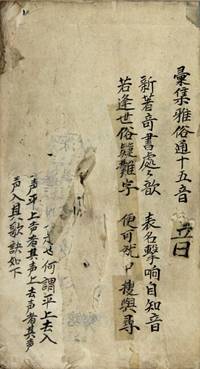 彙集雅俗通十五音
新著奇書處々歌　表名擊响自知音
若逢世俗疑難字　便可就中覓與尋
何謂平上去入
声平上声者其声上去声者其声
声入其歌訣如下